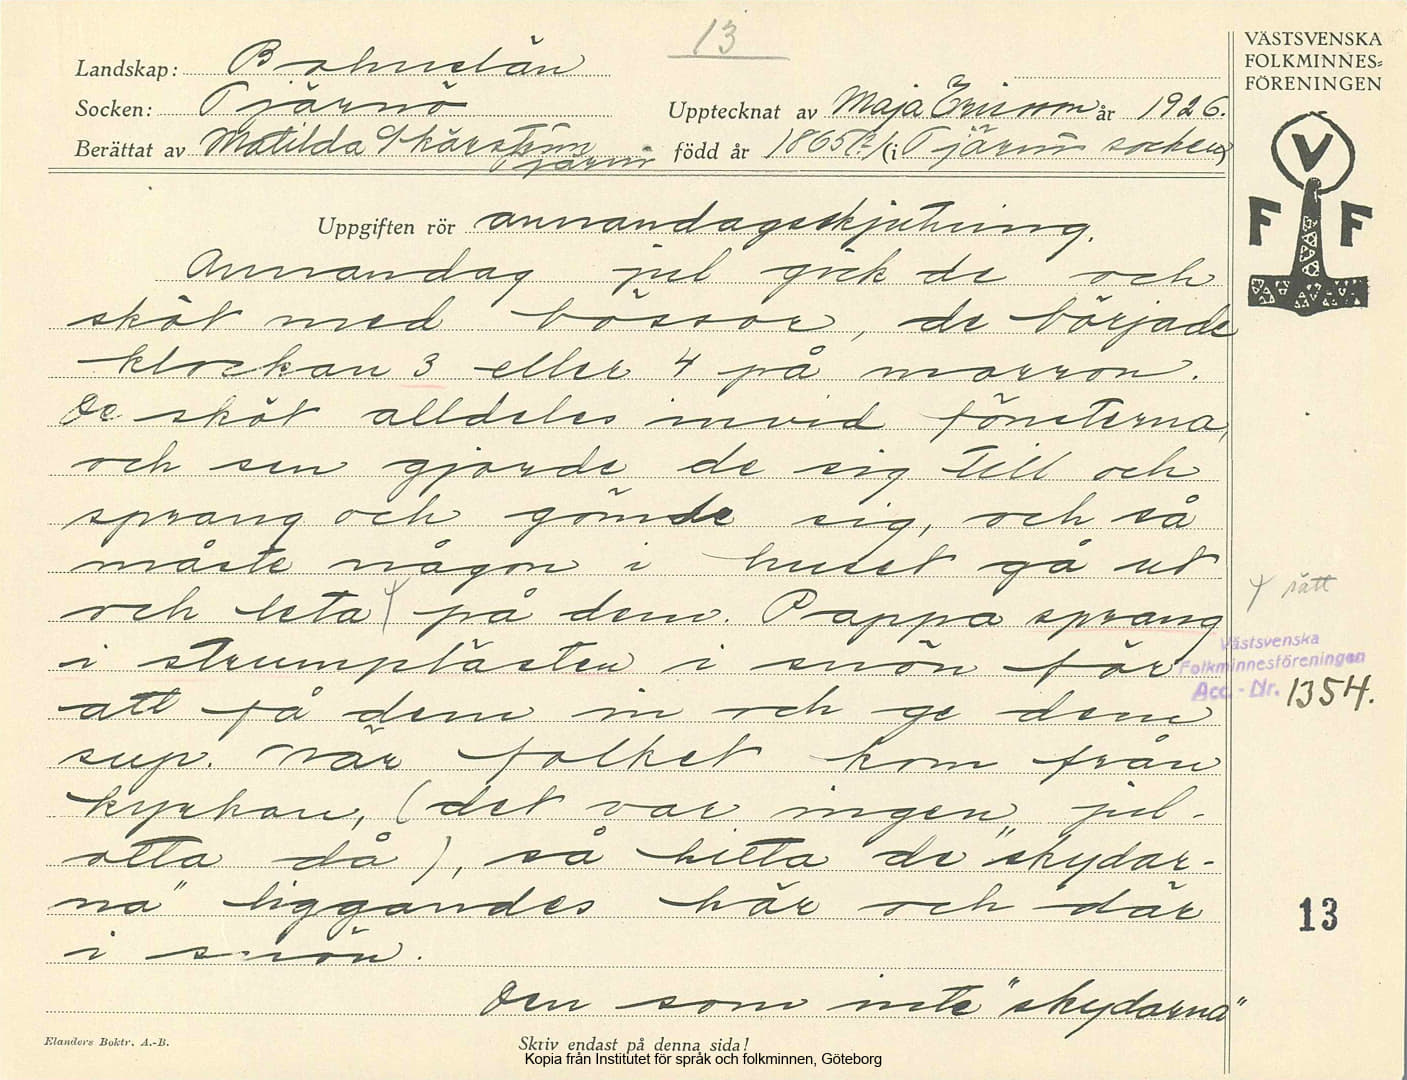 13
VÄSTSVENSKA
FOLKMINNES=
FÖRENINGEN
V
F F
Landskap: Bohuslän
Socken: Tjärnö
Upptecknat av Maja Ericson år 1926.
Berättat av Matilda Skärström
Tjärnö
född år 1865 (i Tjärnö socken)
Uppgiften rör annandagsskjutning.
Annandag jul gick de och
sköt med bössor, de började
klockan 3 eller 4 på morron.
De sköt alldeles invid fönsterna,
och sen gjorde de sig till och
sprang och gömde sig, och så
måste någon i huset gå ut
och leta på dem. Pappa sprang
rätt
i strumplästen i snön för
att få dem in och ge dem
sup. När folket kom från
kyrkan, (det var ingen jul-
otta då), så hitta de "skydar-
na" liggandes här och där
i snön.
Den som inte "skydarna"
Västsvenska
Folkminnesföreningen
Acc. - Nr. 1354.
13
Elanders Boktr. A.-B.
Skriv endast på denna sida!
Kopia från Institutet för språk och folkminnen, Göteborg